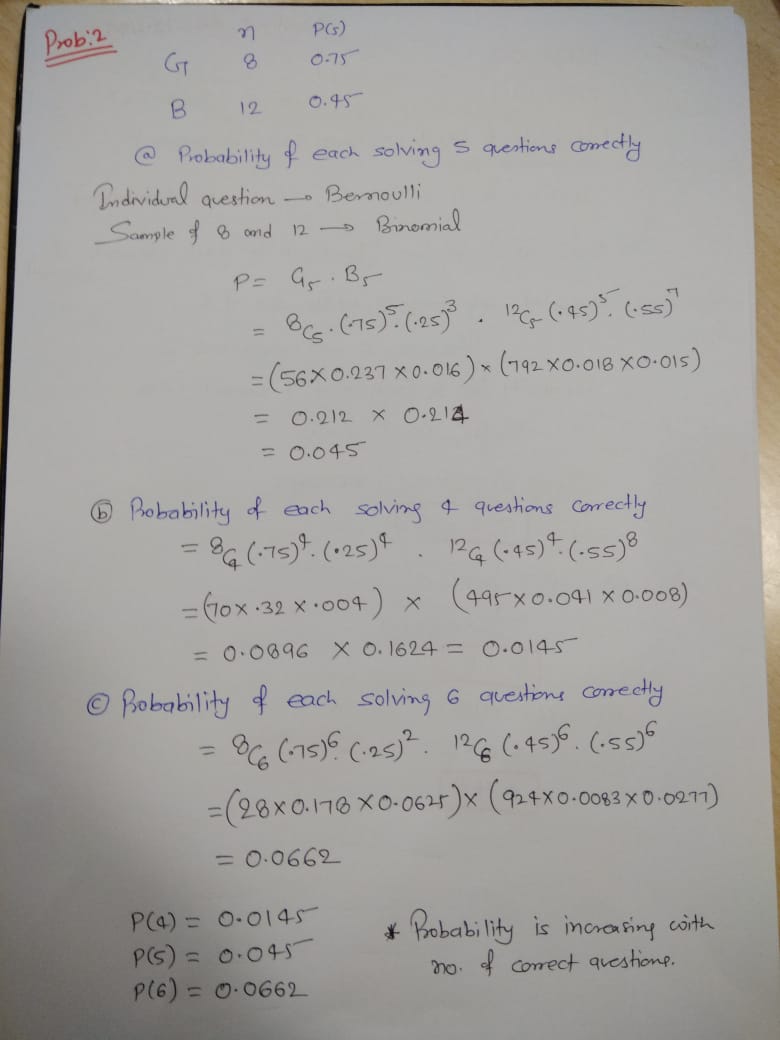 Prob:2
n P(s)
G 8 0.75
B 12 0.45
@ Probability of each solving 5 questions correctly
Individual question → Bernoulli
Sample of 8 and 12 → Binomial
P = G₅ . B₅
= 8C₅ . (.75)⁵. (.25)³ . 12C₅ (.45)⁵. (.55)⁷
= (56 X 0.237 X 0.016) x (792 X 0.018 X 0.015)
= 0.212 X 0.214
= 0.045
ⓑ Probability of each solving 4 questions correctly
= 8C₄ (.75)⁴. (.25)⁴ . 12C₄ (.45)⁴. (.55)⁸
= (70 x .32 x .004) x (495 x 0.041 x 0.008)
= 0.0896 X 0.1624 = 0.0145
ⓒ Probability of each solving 6 questions correctly
= 8C₆ (.75)⁶. (.25)². 12C₆ (.45)⁶. (.55)⁶
= (28 X 0.178 X 0.0625) x (924 X 0.0083 x 0.0277)
= 0.0662
P(4) = 0.0145
P(5) = 0.045
P(6) = 0.0662
* Probability is increasing with
no. of correct questions.